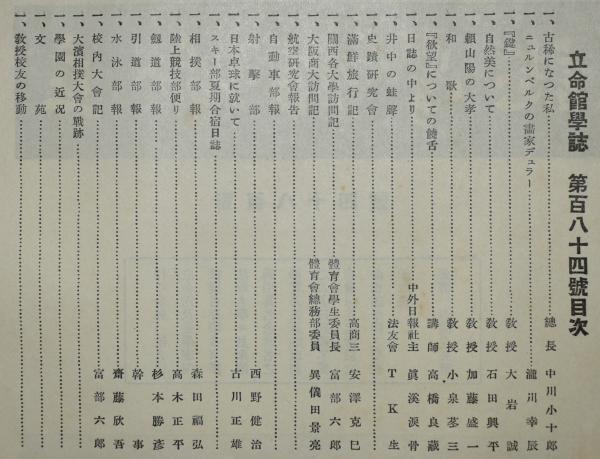 立命館學誌 第百八十四號目次
一、古稀になつた私………總長 中川小十郎
一、ニュルンベルクの畫家デュラー………瀧川幸辰
一、『鍵』………教授 大岩誠
一、自然美について………教授 石田興平
一、頼山陽の大孝………教授 加藤盛一
一、和歌………教授 小泉苳三
一、『欲望』についての饒舌………講師 高橋良藏
一、日誌の中より………中外日報社主 眞溪涙骨
一、井中の蛙聲………法友會 TK生
一、史蹟研究會………
一、滿鮮旅行記………高商三 安澤克巳
一、關西各大學訪問記………體育會學生委員長 富部六郎
一、大阪商大訪問記………體育會總務部委員 異儀田景亮
一、航空研究會報告………
一、自動車部報………
一、射擊部………西野健治
一、日本卓球に就いて………古川正雄
一、スキー部夏期合宿日誌………
一、相撲部報………森田福弘
一、陸上競技部便り………高木正平
一、劔道部報………杉本勝彥
一、引道部報………幹事
一、水泳部報………齋藤欣吾
一、校內大會記………富部六郎
一、大濱相撲大會の戰跡………
一、學園の近況………
一、文苑………
一、教授校友の移動………